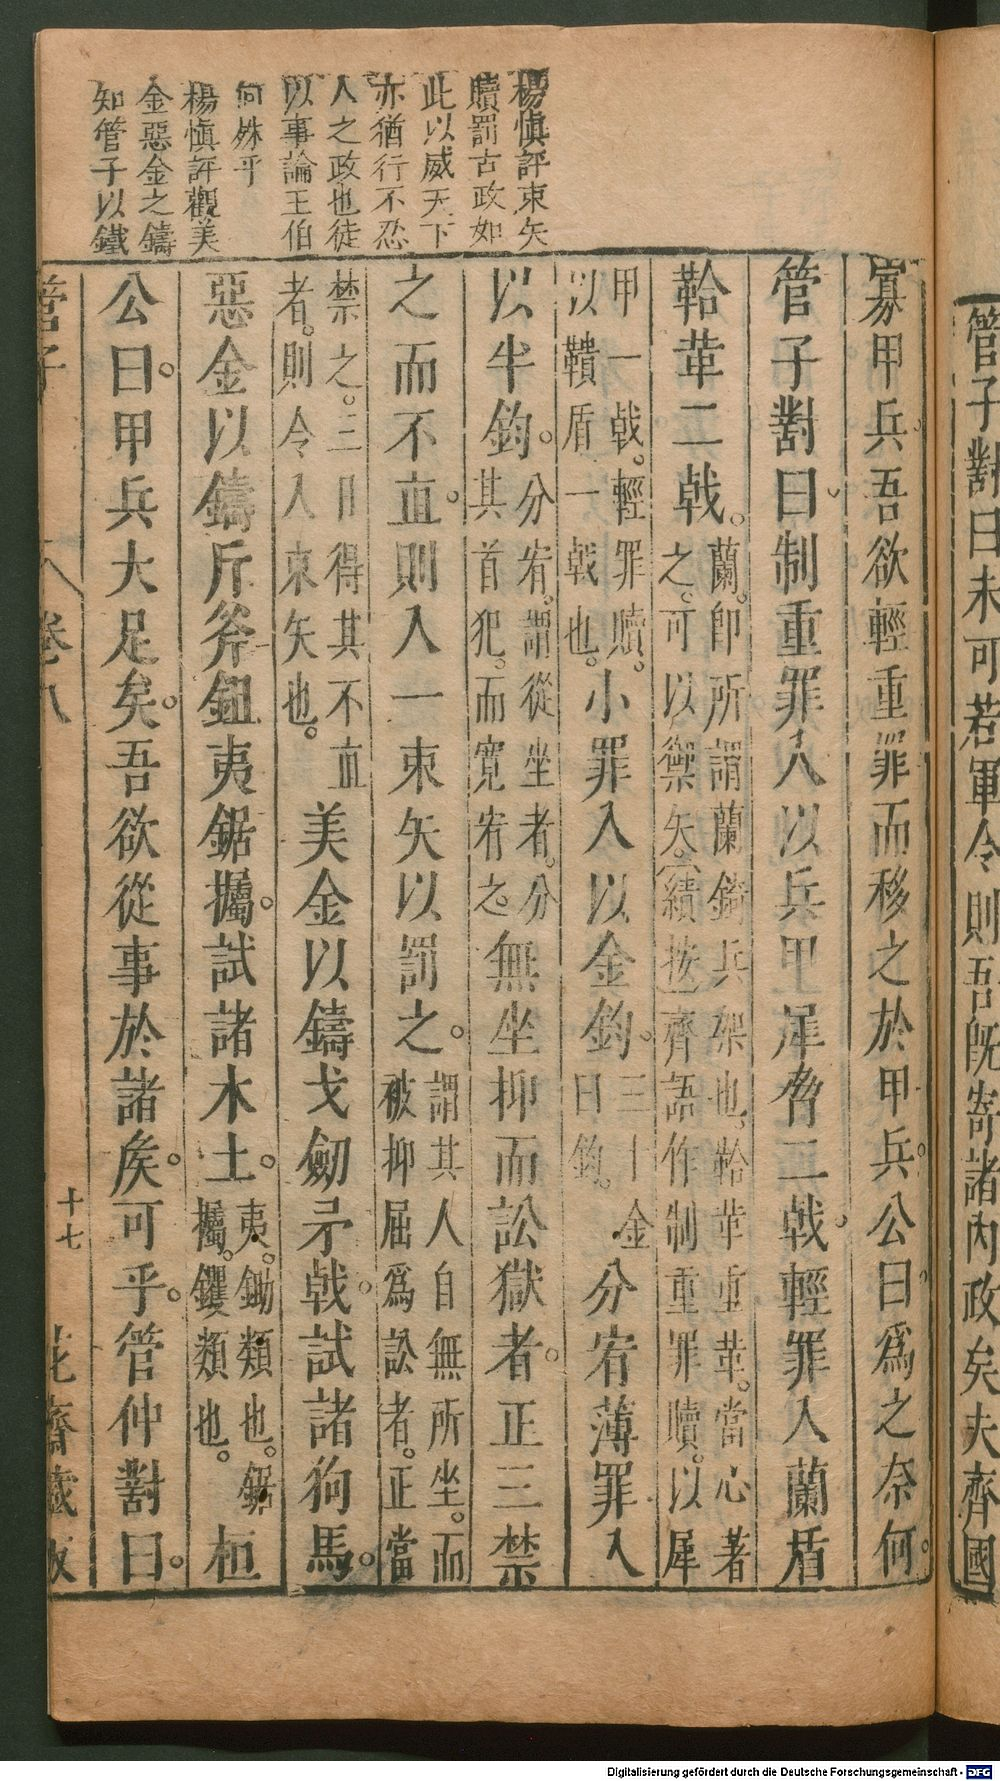 管子對曰未可若軍令則吾既寄諸內政矣夫齊國
楊慎評束矢
贖罰古政如
此以威天下
亦猶行不忍
人之政也徒
以事論王伯
何殊乎
楊慎評觀美
金惡金之鑄
知管子以鐵
寡甲兵。吾欲輕重罪而移之於甲兵。公曰。爲之奈何。
管子對曰。制重罪入以兵甲犀脅二戟。輕罪入蘭盾
鞈革二戟。
蘭。卽所謂蘭錡兵架也。鞈革重革。當心著
之。可以禦矢。(續按)齊語作制重罪贖。以犀
甲一戟。輕罪贖。
以鞼盾一戟也。
小罪入以金鈞。
三十金
曰鈞。
分宥薄罪入
以半鈞。
分宥。謂從坐者。分
其首犯。而寬宥之。
無坐抑而訟獄者。正三禁
之而不直。則入一束矢以罰之。
謂其人自無所坐。而
被抑屈爲訟者。正當
禁之。三日得其不直
者。則令入束矢也。
美金以鑄戈劒矛戟。試諸狗馬。
惡金以鑄斤斧鈕夷鋸欘。試諸木土。
夷。鋤類也。鋸
欘。钁類也。
桓
公曰。甲兵大足矣。吾欲從事於諸矦。可乎。管仲對曰。
管子 卷八 十七 花齋藏板
Digitalisierung gefördert durch die Deutsche Forschungsgemeinschaft - DFG